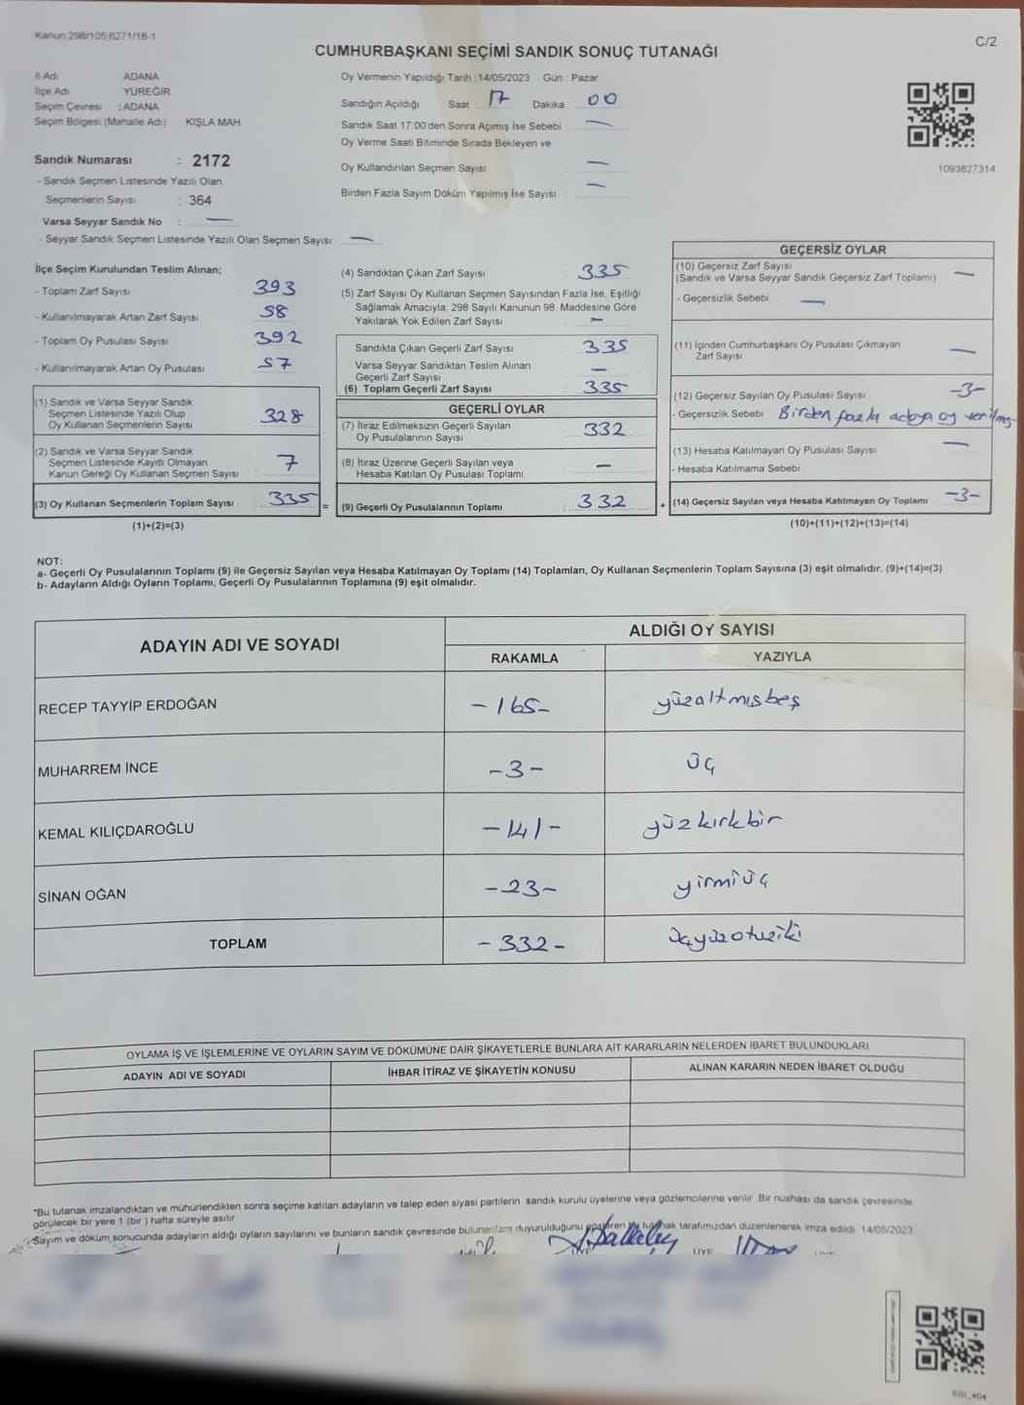 Kanun 298/105-6271/16-1
C/2
CUMHURBAŞKANI SEÇİMİ SANDIK SONUÇ TUTANAĞI
İl Adı ADANA
İlçe Adı YÜREĞİR
Seçim Çevresi : ADANA
Seçim Bölgesi (Mahalle Adı) KIŞLA MAH
Oy Vermenin Yapıldığı Tarih : 14/05/2023 Gün : Pazar
Sandığın Açıldığı Saat 17 Dakika 00
Sandık Saat 17:00'den Sonra Açılmış İse Sebebi —
Oy Verme Saati Bitiminde Sırada Bekleyen ve
Oy Kullandırılan Seçmen Sayısı —
Birden Fazla Sayım Döküm Yapılmış İse Sayısı —
1093827314
Sandık Numarası : 2172
- Sandık Seçmen Listesinde Yazılı Olan
Seçmenlerin Sayısı : 364
Varsa Seyyar Sandık No : —
- Seyyar Sandık Seçmen Listesinde Yazılı Olan Seçmen Sayısı: —
İlçe Seçim Kurulundan Teslim Alınan;
- Toplam Zarf Sayısı 393
- Kullanılmayarak Artan Zarf Sayısı 58
- Toplam Oy Pusulası Sayısı 392
- Kullanılmayarak Artan Oy Pusulası 57
(1) Sandık ve Varsa Seyyar Sandık
Seçmen Listesinde Yazılı Olup
Oy Kullanan Seçmenlerin Sayısı 328
(2) Sandık ve Varsa Seyyar Sandık
Seçmen Listesinde Kayıtlı Olmayan
Kanun Gereği Oy Kullanan Seçmen Sayısı 7
(3) Oy Kullanan Seçmenlerin Toplam Sayısı 335 =
(1)+(2)=(3)
(4) Sandıktan Çıkan Zarf Sayısı 335
(5) Zarf Sayısı Oy Kullanan Seçmen Sayısından Fazla İse, Eşitliği
Sağlamak Amacıyla, 298 Sayılı Kanunun 98. Maddesine Göre
Yakılarak Yok Edilen Zarf Sayısı —
Sandıkta Çıkan Geçerli Zarf Sayısı 335
Varsa Seyyar Sandıktan Teslim Alınan
Geçerli Zarf Sayısı —
(6) Toplam Geçerli Zarf Sayısı 335
GEÇERLİ OYLAR
(7) İtiraz Edilmeksizin Geçerli Sayılan
Oy Pusulalarının Sayısı 332
(8) İtiraz Üzerine Geçerli Sayılan veya
Hesaba Katılan Oy Pusulası Toplamı —
(9) Geçerli Oy Pusulalarının Toplamı 332 +
GEÇERSİZ OYLAR
(10) Geçersiz Zarf Sayısı
(Sandık ve Varsa Seyyar Sandık Geçersiz Zarf Toplamı) —
- Geçersizlik Sebebi —
(11) İçinden Cumhurbaşkanı Oy Pusulası Çıkmayan
Zarf Sayısı —
(12) Geçersiz Sayılan Oy Pusulası Sayısı -3-
- Geçersizlik Sebebi Birden fazla adaya oy verilmiş
(13) Hesaba Katılmayan Oy Pusulası Sayısı —
- Hesaba Katılmama Sebebi
(14) Geçersiz Sayılan veya Hesaba Katılmayan Oy Toplamı -3-
(10)+(11)+(12)+(13)=(14)
NOT:
a- Geçerli Oy Pusulalarının Toplamı (9) ile Geçersiz Sayılan veya Hesaba Katılmayan Oy Toplamı (14) Toplamları, Oy Kullanan Seçmenlerin Toplam Sayısına (3) eşit olmalıdır. (9)+(14)=(3)
b- Adayların Aldığı Oyların Toplamı, Geçerli Oy Pusulalarının Toplamına (9) eşit olmalıdır.
ADAYIN ADI VE SOYADI ALDIĞI OY SAYISI
RAKAMLA YAZIYLA
RECEP TAYYİP ERDOĞAN -165- yüzaltmışbeş
MUHARREM İNCE -3- üç
KEMAL KILIÇDAROĞLU -141- yüzkırkbir
SİNAN OĞAN -23- yirmiüç
TOPLAM -332- üçyüzotuziki
OYLAMA İŞ VE İŞLEMLERİNE VE OYLARIN SAYIM VE DÖKÜMÜNE DAİR ŞİKAYETLERLE BUNLARA AİT KARARLARIN NELERDEN İBARET BULUNDUKLARI
ADAYIN ADI VE SOYADI İHBAR İTİRAZ VE ŞİKAYETİN KONUSU ALINAN KARARIN NEDEN İBARET OLDUĞU
*Bu tutanak imzalandıktan ve mühürlendikten sonra seçime katılan adayların ve talep eden siyasi partilerin sandık kurulu üyelerine veya gözlemcilerine verilir. Bir nüshası da sandık çevresinde
görülecek bir yere 1 (bir) hafta süreyle asılır.
Sayım ve döküm sonucunda adayların aldığı oyların sayılarını ve bunların sandık çevresinde duyurulduğunu gösteren tutanak tarafımızdan düzenlenerek imza edildi. 14/05/2023
ÜYE